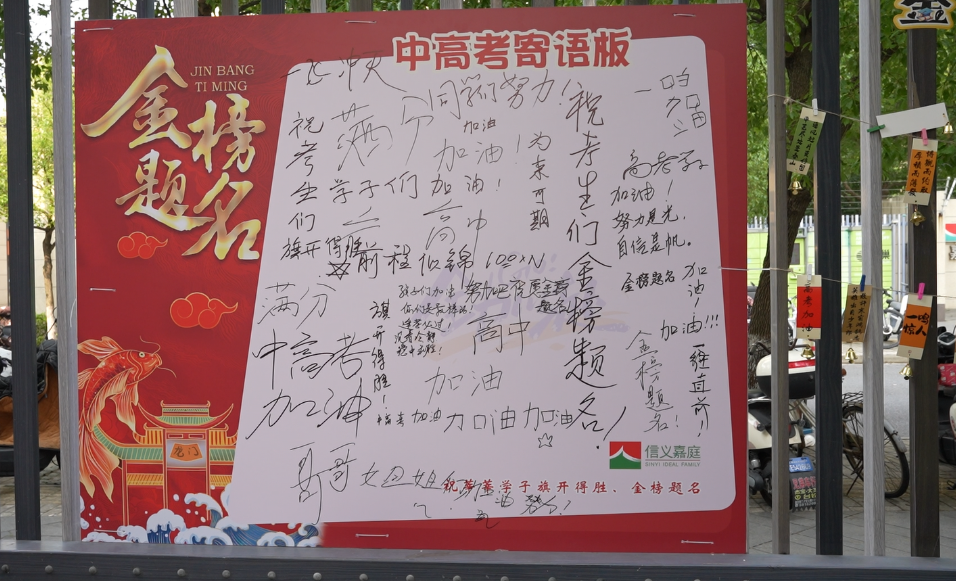 中高考寄语板
金榜题名
JIN BANG
TI MING
一飞冲天
同学们努力!
满分
加油
加油!
祝考生们
学子们加油!
旗开得胜
为来可期
祝考生们金榜题名!
高考学子
加油!
努力是光,
自信是帆。
金榜题名
加油!
加油!!!
一往直前!
金榜题名!
前程似錦 100×N
满分
旗开得胜!
孩子们加油
高中
加油
中高考
加油
加油
加油
加油
哥哥
姐
龙门
信义嘉庭
SINYI IDEAL FAMILY
学子旗开得胜、金榜题名
高考加油
一鸣惊人